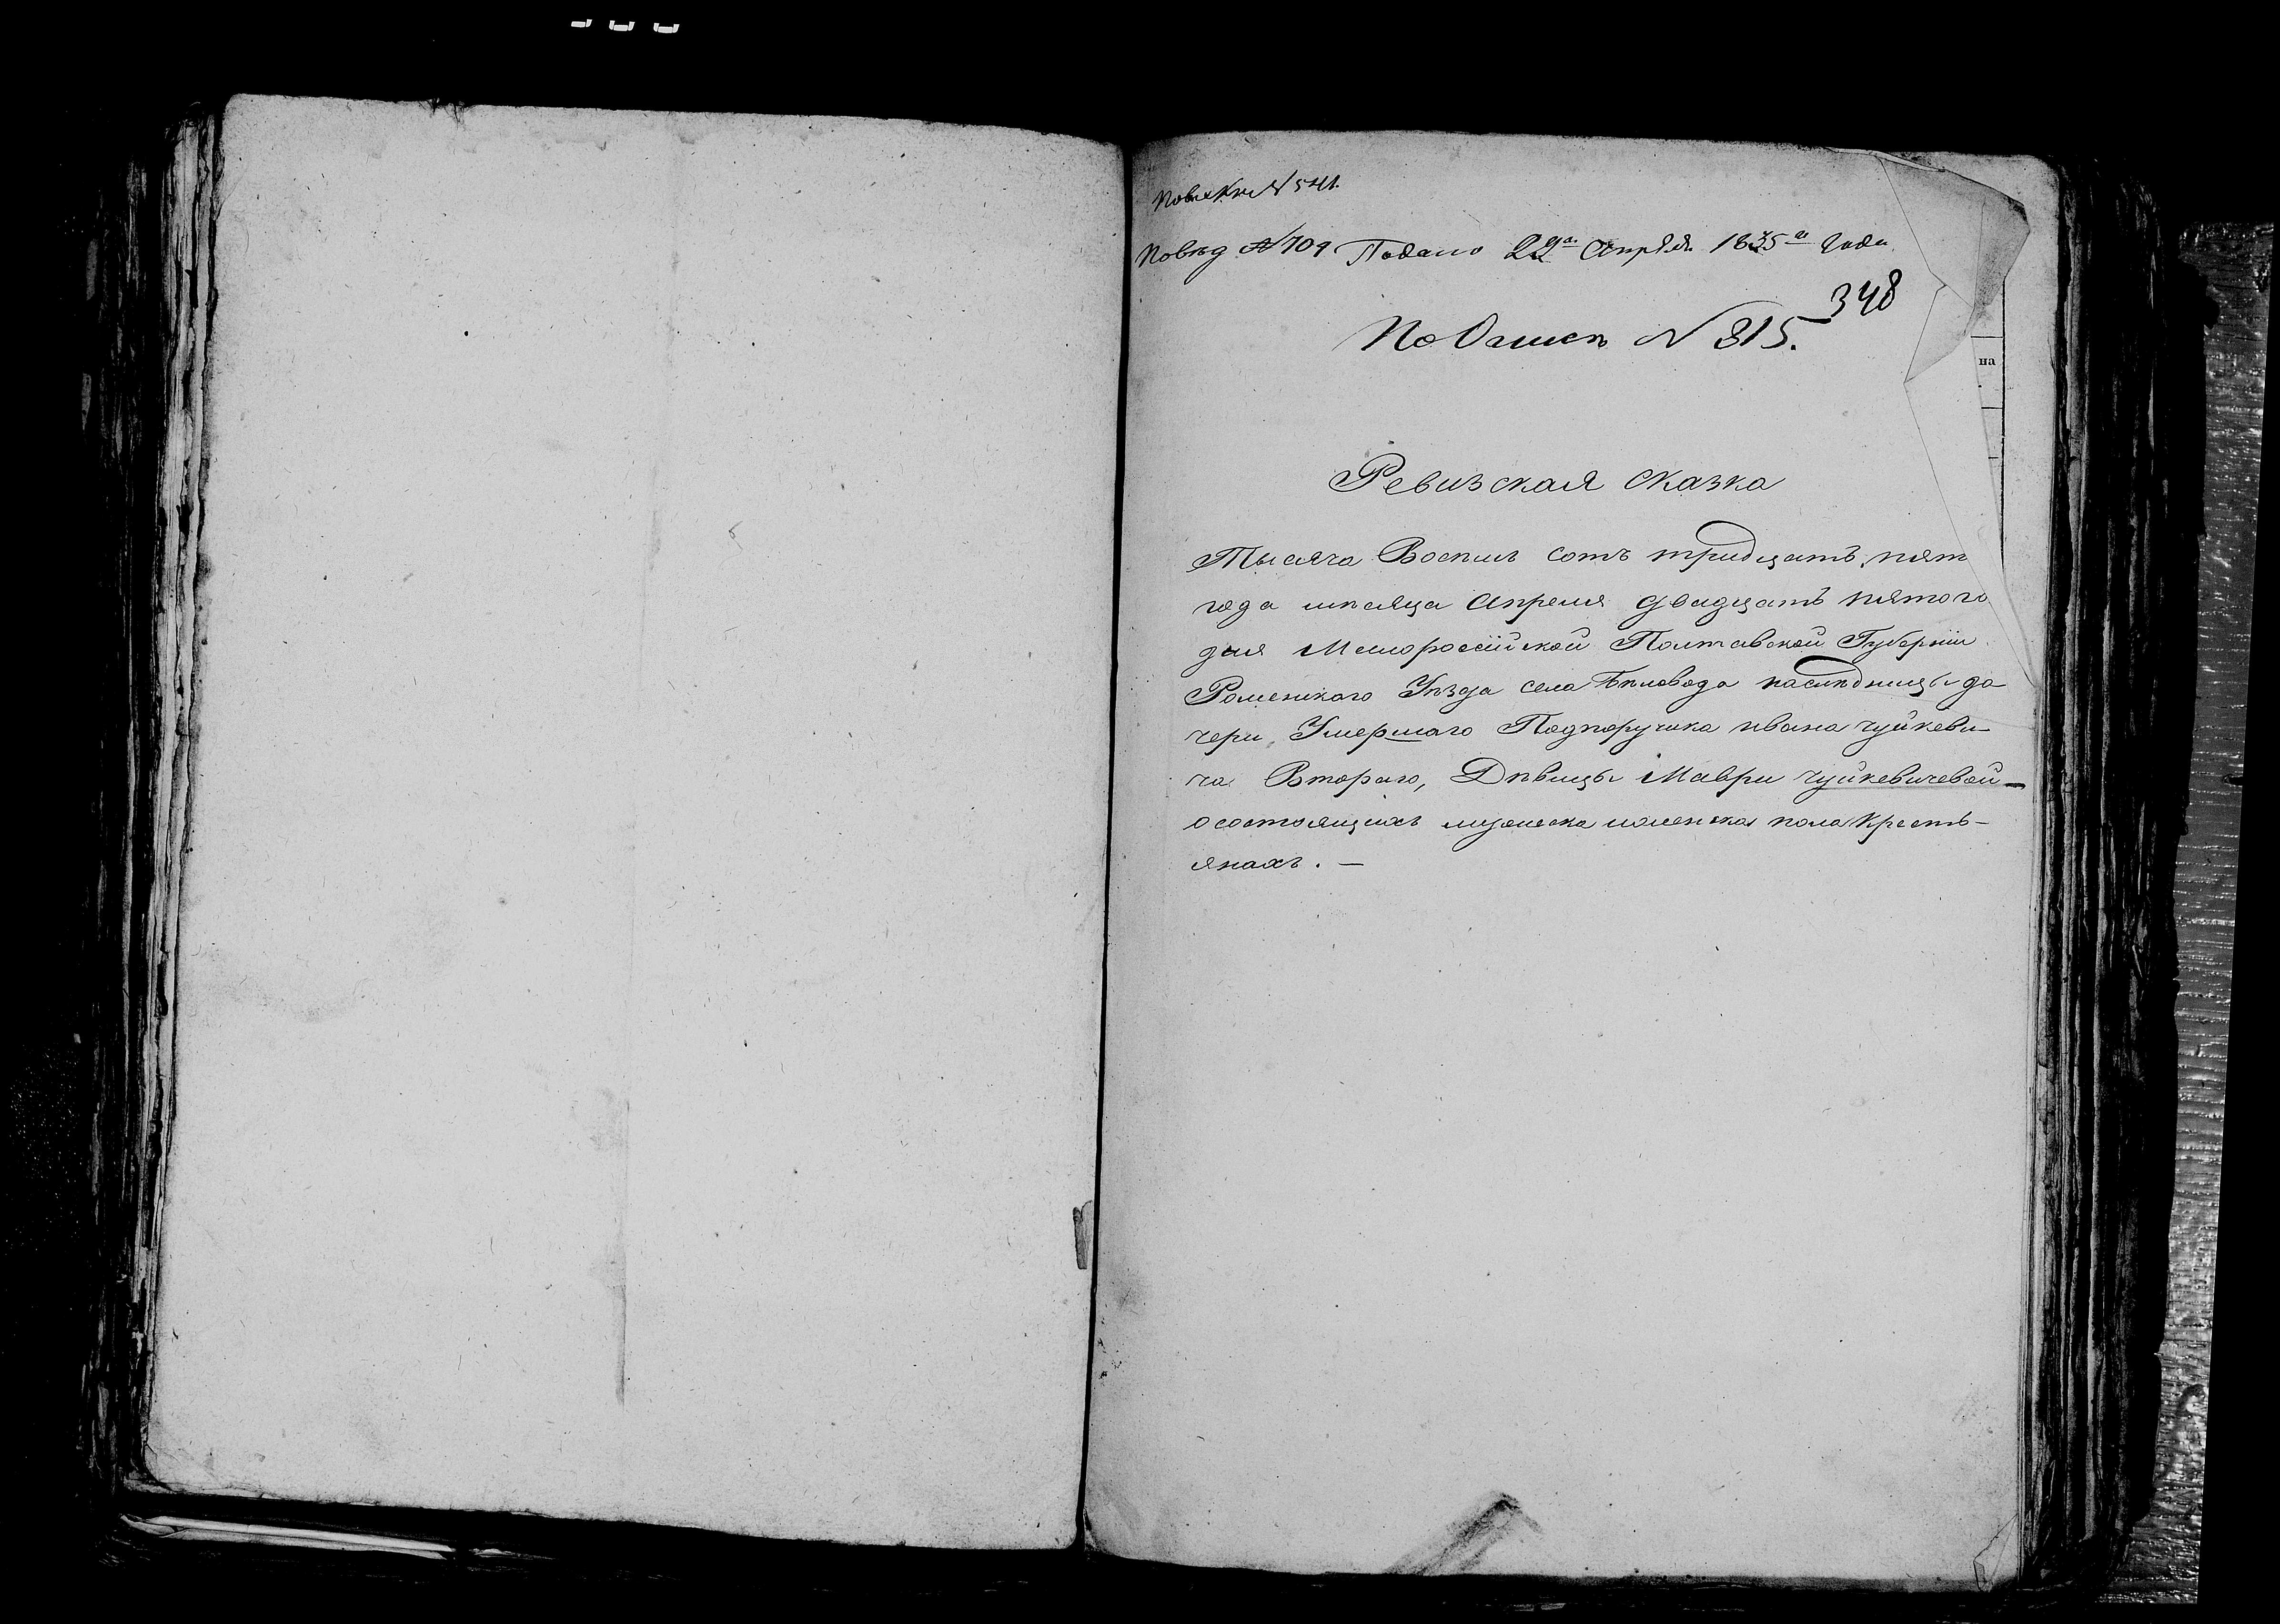 № 541.
№ 709 Подано 29го Апреля 1835го Года
348
По Описи № 815.
на
Ревизская сказка
Тысяча Восемь сотъ тридцать пят
года мѣсяца Апреля двадцать пятого
дня Малоросеійской Полтавской Губерніи
Роменского Уѣзда села Бѣловода наслѣдницы до
чери Умершаго Подпоручика ивана чуйкеви-
ча Втораго, Дѣвицы Маври чуйкевичевой-
о состоящихъ мужеска иженска пола Кресть-
янахъ. -